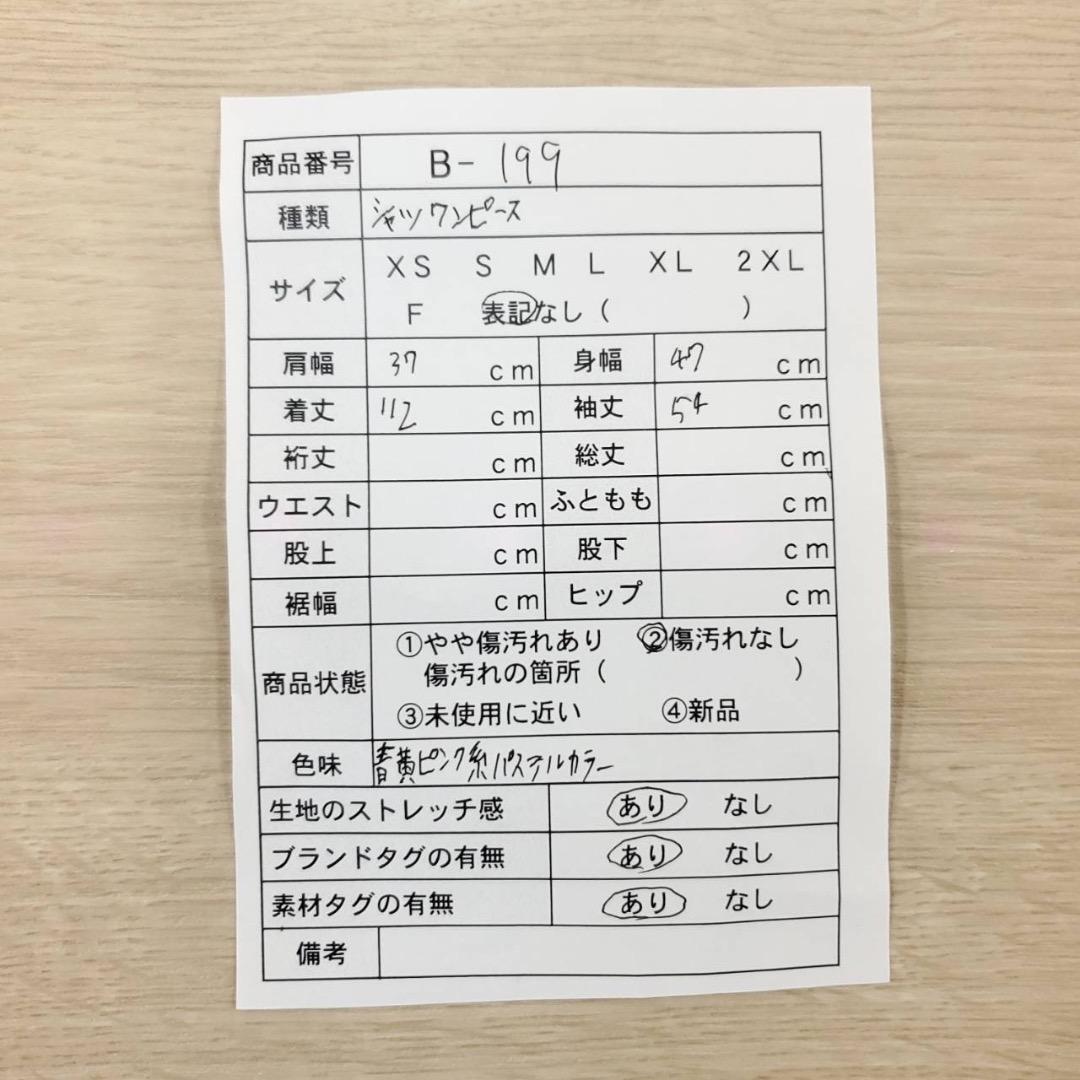 商品番号 B-199
種類 シャツワンピース
サイズ XS S M L XL 2XL
F 表記なし ( )
肩幅 37 cm 身幅 47 cm
着丈 112 cm 袖丈 54 cm
裄丈 cm 総丈 cm
ウエスト cm ふともも cm
股上 cm 股下 cm
裾幅 cm ヒップ cm
商品状態 ①やや傷汚れあり ②傷汚れなし
傷汚れの箇所 ( )
③未使用に近い ④新品
色味 青黄ピンク系パステルカラー
生地のストレッチ感 あり なし
ブランドタグの有無 あり なし
素材タグの有無 あり なし
備考